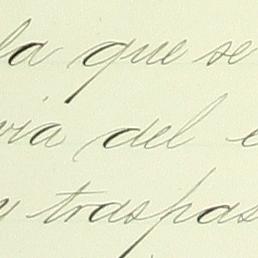 la que se
via del e
y traspas